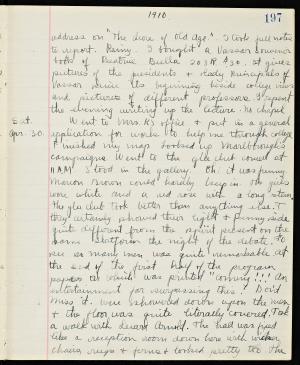 1910.
197
address on "The divine of Old Age." I took full notes
to report. Rainy. I bought a Vassar Souvenir
book of Beatrice Bucha 203 R $30. It gives
pictures of the presidents & lady principals of
Vassar since its beginning beside college views
and pictures of different professors. I spent
the evening writing up the lecture in chapel
Sat. Went to Mrs. K's office & put in a general
Apr. 30. application for work to help me through college
I finished my map & looked up Marlborough's
campaigns. Went to the glee club concert at
11 AM. Stood in the gallery. Oh! it was funny
Marion Brown could hardly keep in. The girls
wore white and a red rose with a long stem
The glee club took better than anything else. I
they certainly showed their light & funny side
quite different from the spirit present on the
same platform the night of the debate. To
see so many men was quite remarkable. At
the end of the first half of the program
papers on which was printed "Coming!!! An
entertainment far surpassing this! Don't
Miss it. were showered down upon the men
& the floor was quite literally covered. Took
a walk with Arnold. The hall was fixed
like a reception room down here with wicker
chairs, rugs & ferns & looked pretty too. The